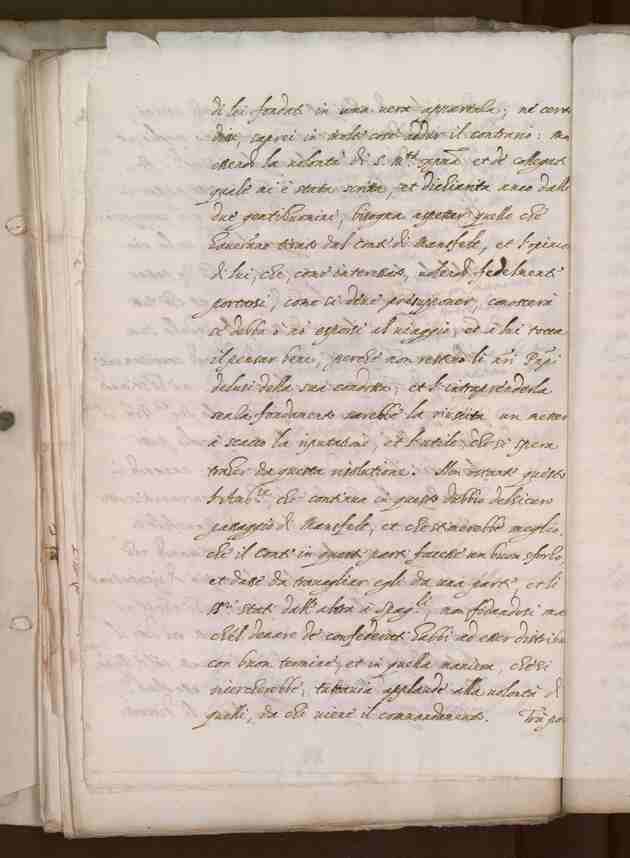 di lui fondati in una vera apparenza; nè certo
direi, saprei in molte cose addur il contrario: ma
essendo la volontà di S. M.tà et de colleghi
quale mi è stata scritta, et dichiarita anco dalli
due gentilhuomini, bisogna aspettar quello che
haveranno tirato dal Conte di Mansfelt, et
di lui, che, come interessato, volendo fedelmente
portarsi, come si deve presupponer, conoscerà
se debba ò nò esporsi al viaggio, et à lui tocca
il pensar bene, perchè non restino li Prĩpi
delusi della sua condotta; et l'intraprenderla
senza fondamento sarebbe la riuscita un metter
à scacco la riputatione, et l'utile, che si spera
traher da questa resolutione. Non ostante questo
l'Amb.r, che continua in questo dubbio del sicuro
passaggio di Mansfelt, et che stimerebbe meglio,
che il Conte in queste parti facesse un buon sforzo,
et dasse da travagliar egli da una parte, et li
ss.ri stati dall'altra à Spag.li, non fidandosi ma
che'l denaro de confederati habbi ad esser distribu
con buon termine, et in quella maniera, che si
ricercherebbe, tuttavia applaude alla volontà di
quelli, da chi viene il commandamento. Trà